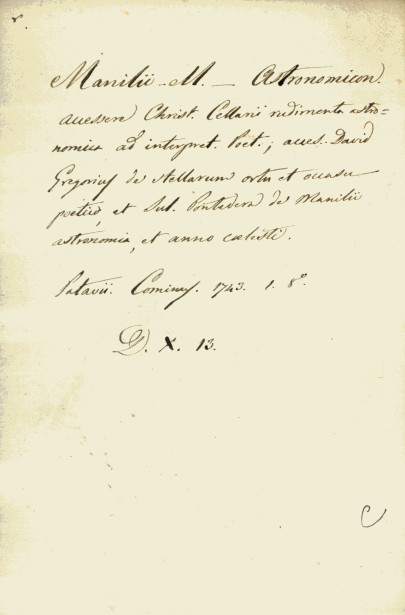 r.
Manilii M. — Astronomicon.
accessere Christ. Cellarii rudimenta astro=
nomica ad interpret. Poët.; acces. David
Gregorius de stellarum ortu et occasu
poëtico, et Jul. Pontedera de Manilii
astronomia, et anno cœlesti.
Patavii. Cominus. 1743. 1. 8º
D. X. 13.
C